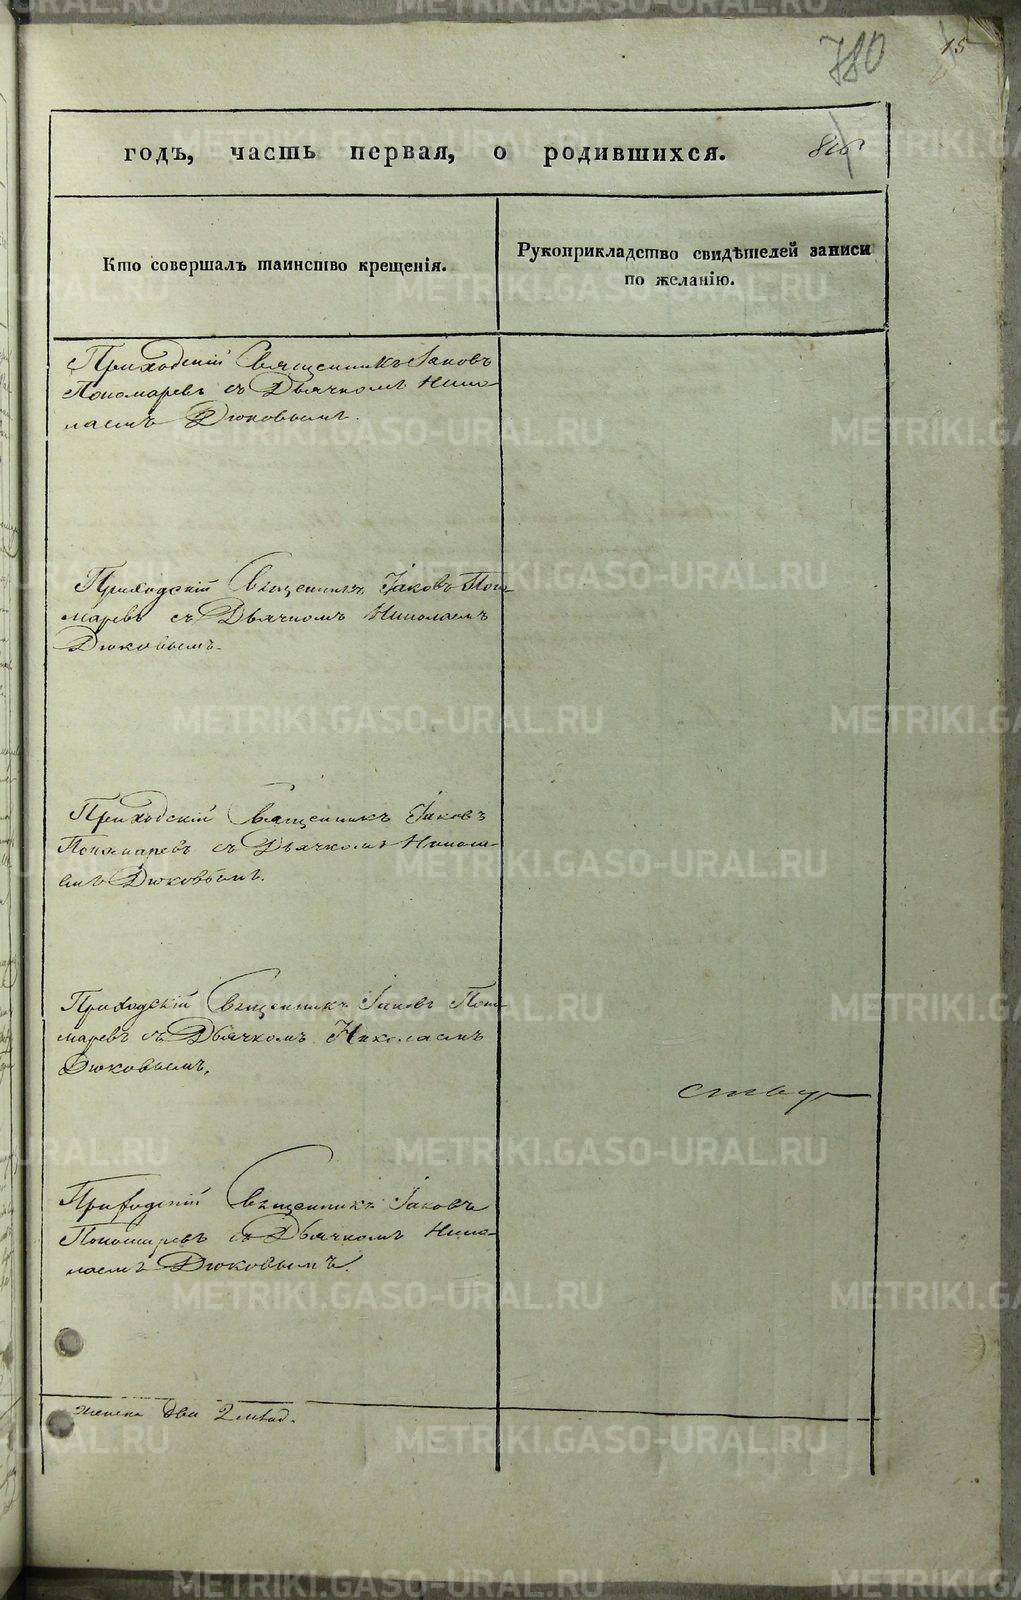 780
15
годъ, часть первая, о родившихся.
Кто совершалъ таинство крещенія.
Рукоприкладство свидѣтелей записи
по желанію.
Приходскій Священникъ Іаковъ
Пономаревъ съ Дьячкомъ Нико-
лаемъ Дюковымъ.
Приходскій Священникъ Іаковъ Поно-
маревъ съ Дьячкомъ Николаемъ
Дюковымъ.
Приходскій Священникъ Іаковъ
Пономаревъ съ Дьячкомъ Никола-
емъ Дюковымъ.
Приходскій Священникъ Іаковъ Поно-
маревъ съ Дьячкомъ Николаемъ
Дюковымъ.
Приходскій Священникъ Іаковъ
Пономаревъ съ Дьячкомъ Нико-
лаемъ Дюковымъ.
женска два 2
METRIKI.GASO-URAL.RU